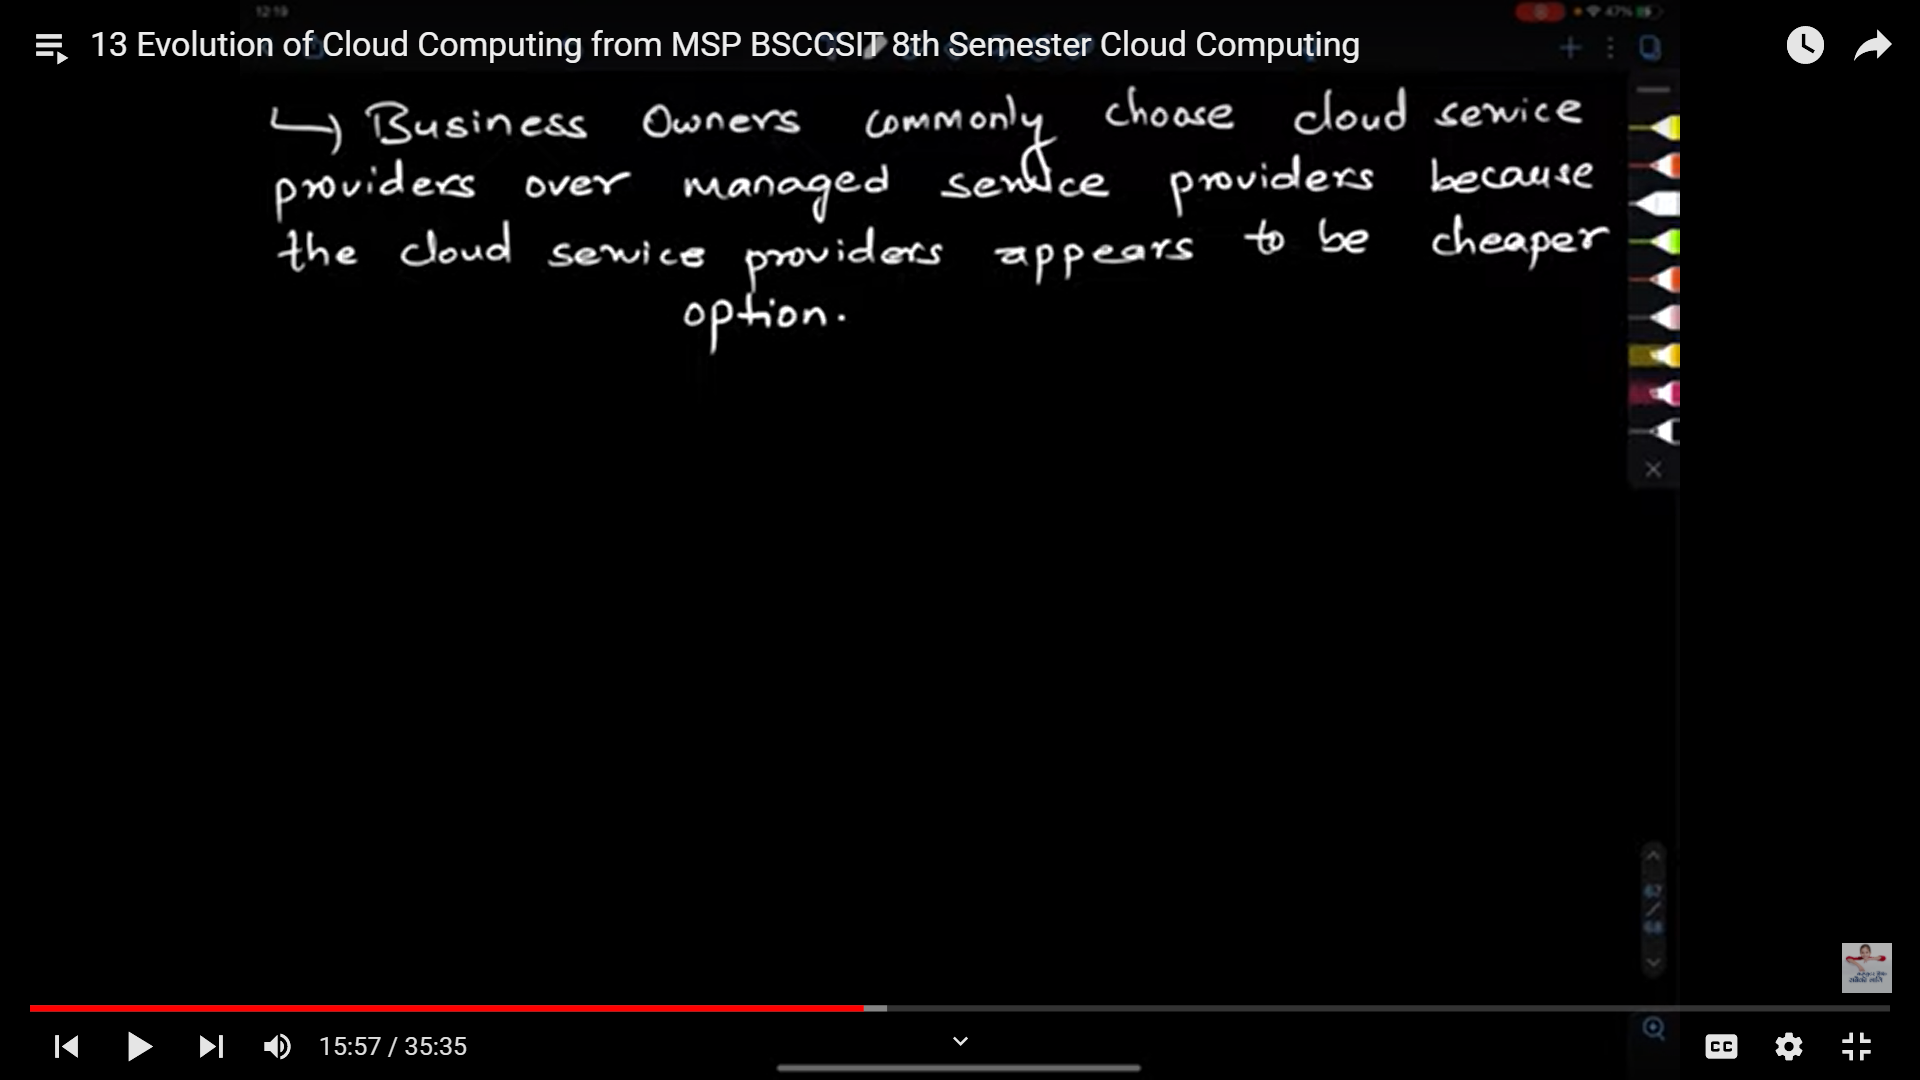 12:19
47%
13 Evolution of Cloud Computing from MSP BSCCSIT 8th Semester Cloud Computing
↳ Business Owners commonly choose cloud service
providers over managed service providers because
the cloud service providers appears to be cheaper
option.
67
/
68
15:57 / 35:35
CC